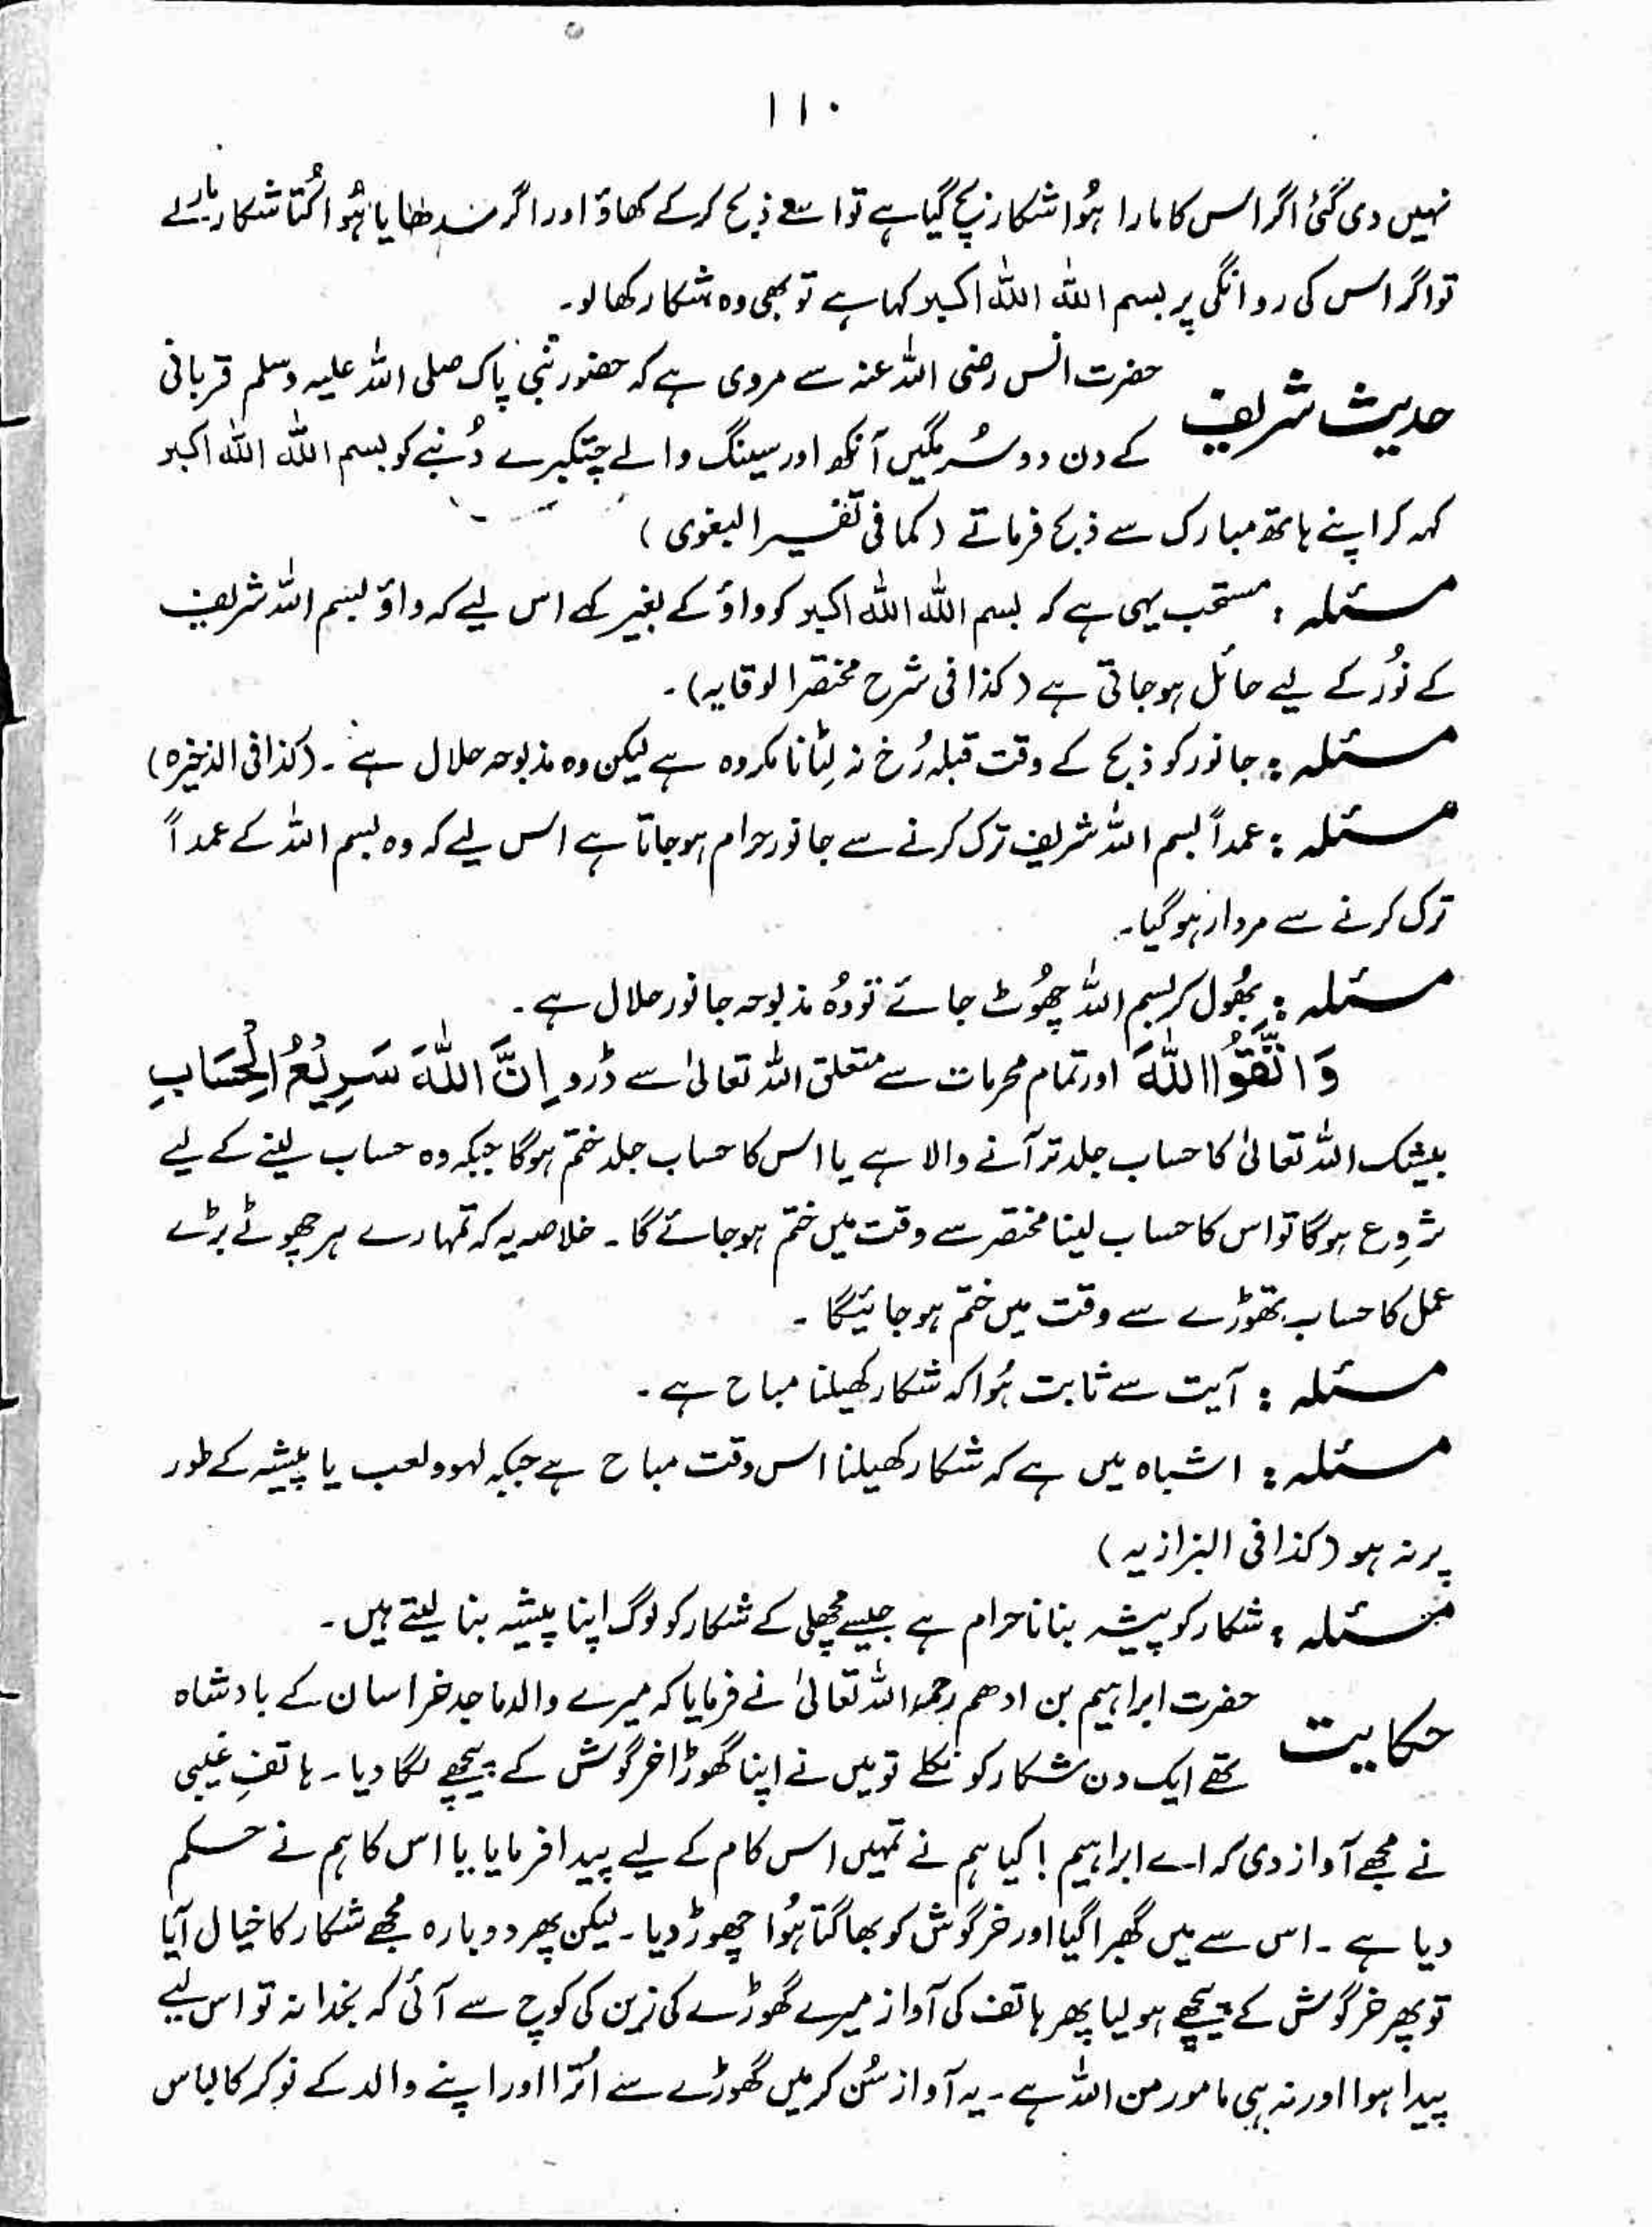 ۱۱۰
نہیں دی گئی اگر اس کا مارا ہُوا شکار بچ گیا ہے تو اسے ذبح کرکے کھاؤ اور اگر سدھایا ہُوا کُتّا شکار مارلے
تو اگر اس کی روانگی پر بسم اللہ اللہ اکبر کہا ہے تو بھی وہ شکار کھا لو۔
حدیث شریف حضرت انس رضی اللہ عنہ سے مروی ہے کہ حضور نبی پاک صلی اللہ علیہ وسلم قربانی
کے دن دو سُرمگیں آنکھ اور سینگ والے چتکبرے دُنبے کو بسم اللہ اللہ اکبر
کہہ کر اپنے ہاتھ مبارک سے ذبح فرماتے (کما فی تفسیر البغوی)
مسئلہ : مستحب یہی ہے کہ بسم اللہ اللہ اکبر کو واؤ کے بغیر کہے اس لیے کہ واؤ بسم اللہ شریف
کے نُور کے لیے حائل ہوجاتی ہے (کذا فی شرح مختصر الوقایہ)۔
مسئلہ : جانور کو ذبح کے وقت قبلہ رُخ نہ لِٹانا مکروہ ہے لیکن وہ مذبوحہ حلال ہے ۔ (کذا فی الذخیرہ)
مسئلہ : عمداً بسم اللہ شریف ترک کرنے سے جانور حرام ہوجاتا ہے اس لیے کہ وہ بسم اللہ کے عمداً
ترک کرنے سے مردار ہوگیا۔
مسئلہ : بھُول کر بسم اللہ چھُوٹ جائے تو وُہ مذبوحہ جانور حلال ہے ۔
وَاتَّقُوا اللّٰهَ اور تمام محرمات سے متعلق اللہ تعالیٰ سے ڈرو اِنَّ اللّٰهَ سَرِيْعُ الْحِسَابِ
بیشک اللہ تعالیٰ کا حساب جلد تر آنے والا ہے یا اس کا حساب جلد ختم ہوگا جبکہ وہ حساب لینے کے لیے
شروع ہوگا تو اس کا حساب لینا مختصر سے وقت میں ختم ہوجائے گا ۔ خلاصہ یہ کہ تمہارے ہر چھوٹے بڑے
عمل کا حساب تھوڑے سے وقت میں ختم ہوجائیگا ۔
مسئلہ : آیت سے ثابت ہُوا کہ شکار کھیلنا مباح ہے ۔
مسئلہ : اشباہ میں ہے کہ شکار کھیلنا اس وقت مباح ہے جبکہ لہو و لعب یا پیشہ کے طور
پر نہ ہو (کذا فی البزازیہ)
مسئلہ : شکار کو پیشہ بنانا حرام ہے جیسے مچھلی کے شکار کو لوگ اپنا پیشہ بنا لیتے ہیں ۔
حکایت حضرت ابراہیم بن ادھم رحمہ اللہ تعالیٰ نے فرمایا کہ میرے والد ماجد خراسان کے بادشاہ
تھے ایک دن شکار کو نکلے تو میں نے اپنا گھوڑا خرگوش کے پیچھے لگا دیا ۔ ہاتفِ غیبی
نے مجھے آواز دی کہ اے ابراہیم ! کیا ہم نے تمہیں اس کام کے لیے پیدا فرمایا یا اس کا ہم نے حکم
دیا ہے ۔ اس سے میں گھبرا گیا اور خرگوش کو بھاگتا ہُوا چھوڑ دیا ۔ لیکن پھر دوبارہ مجھے شکار کا خیال آیا
تو پھر خرگوش کے پیچھے ہولیا پھر ہاتف کی آواز میرے گھوڑے کی زین کی کوچ سے آئی کہ بخدا نہ تو اس لیے
پیدا ہوا اور نہ ہی مامور من اللہ ہے ۔ یہ آواز سُن کر میں گھوڑے سے اُترا اور اپنے والد کے نوکر کا لباس